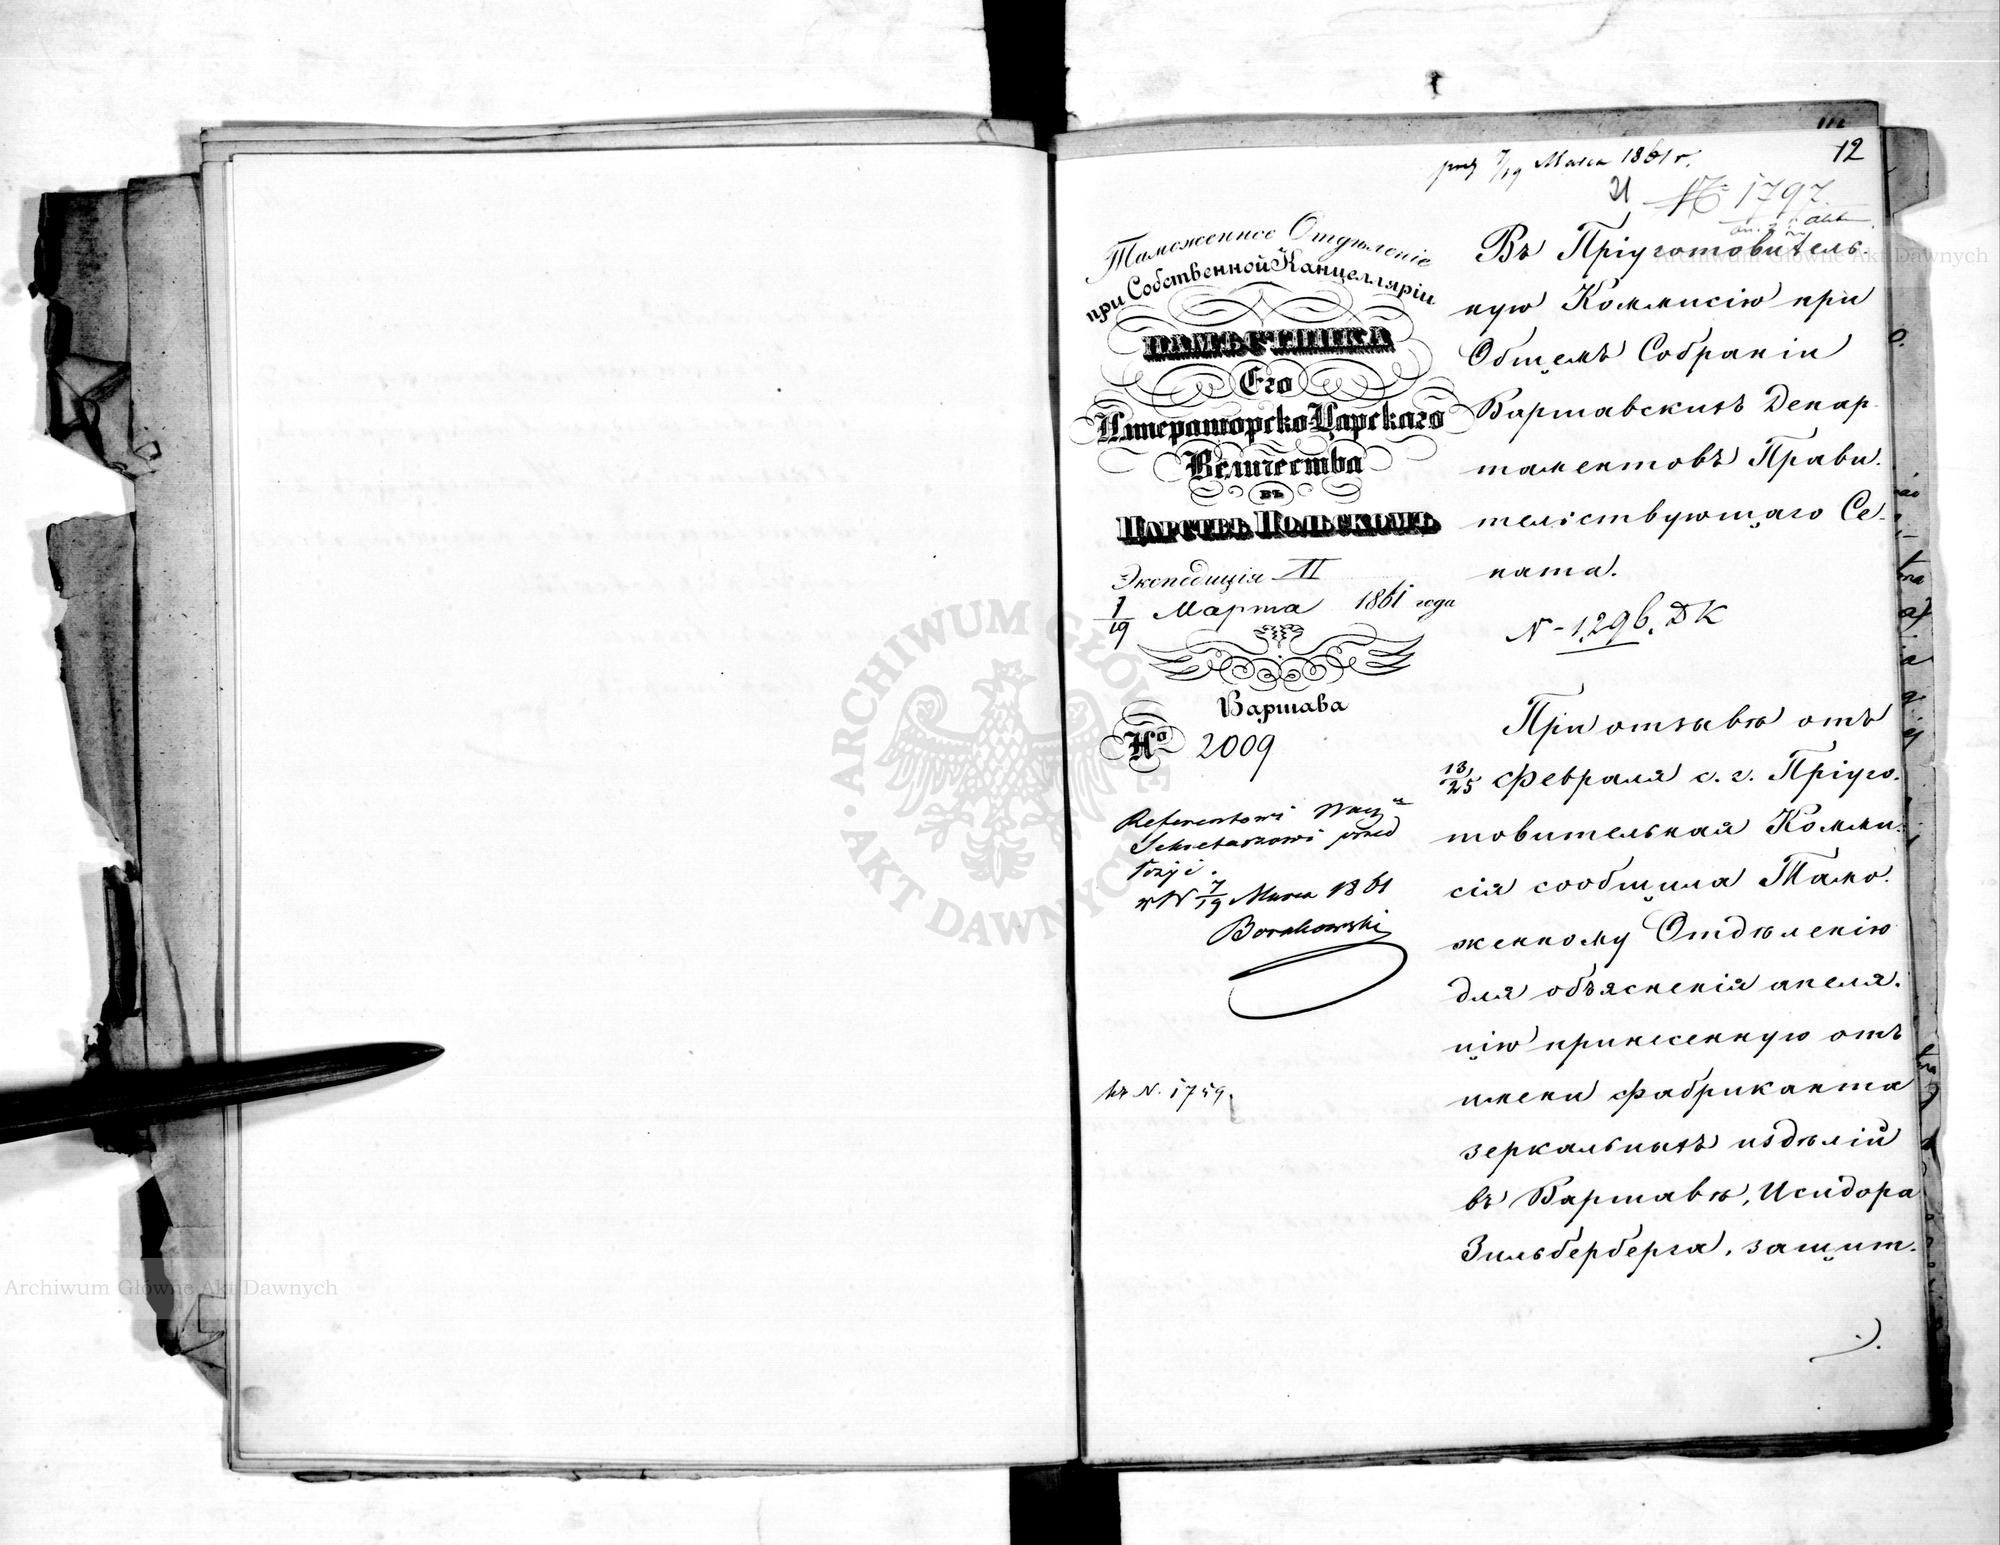 12
7/19 Marca 1861 r.
N° 1797.
Таможенное Отдѣленіе
при Собственной Канцелляріи
НАМѢСТНИКА
Его
Императорско-Царскаго
Величества
въ
ЦАРСТВѢ ПОЛЬСКОМЪ
Экспедиція II
7/19 Марта 1861 года
Варшава
No 2009
Referentowi
Sekretarzowi przed
łożyć.
w W 7/19 Marca 1861
Borakowski
kr N. 1759.
Въ Пріуготовитель-
ную Коммисію при
Общемъ Собраніи
Варшавскихъ Депар-
таментовъ Прави-
тельствующаго Се-
ната.
N - 1,296. ДК
При отзывѣ отъ
13/25 Февраля с. г. Пріуго-
товительная Комми-
сія сообщила Тамо-
женному Отдѣленію
для объясненія апеля-
цію принесенную отъ
имени фабриканта
зеркальныхъ издѣлій
въ Варшавѣ, Исидора
Зильберберга, защит-
ARCHIWUM GŁÓWNE AKT DAWNYCH
Archiwum Główne Akt Dawnych
Archiwum Główne Akt Dawnych